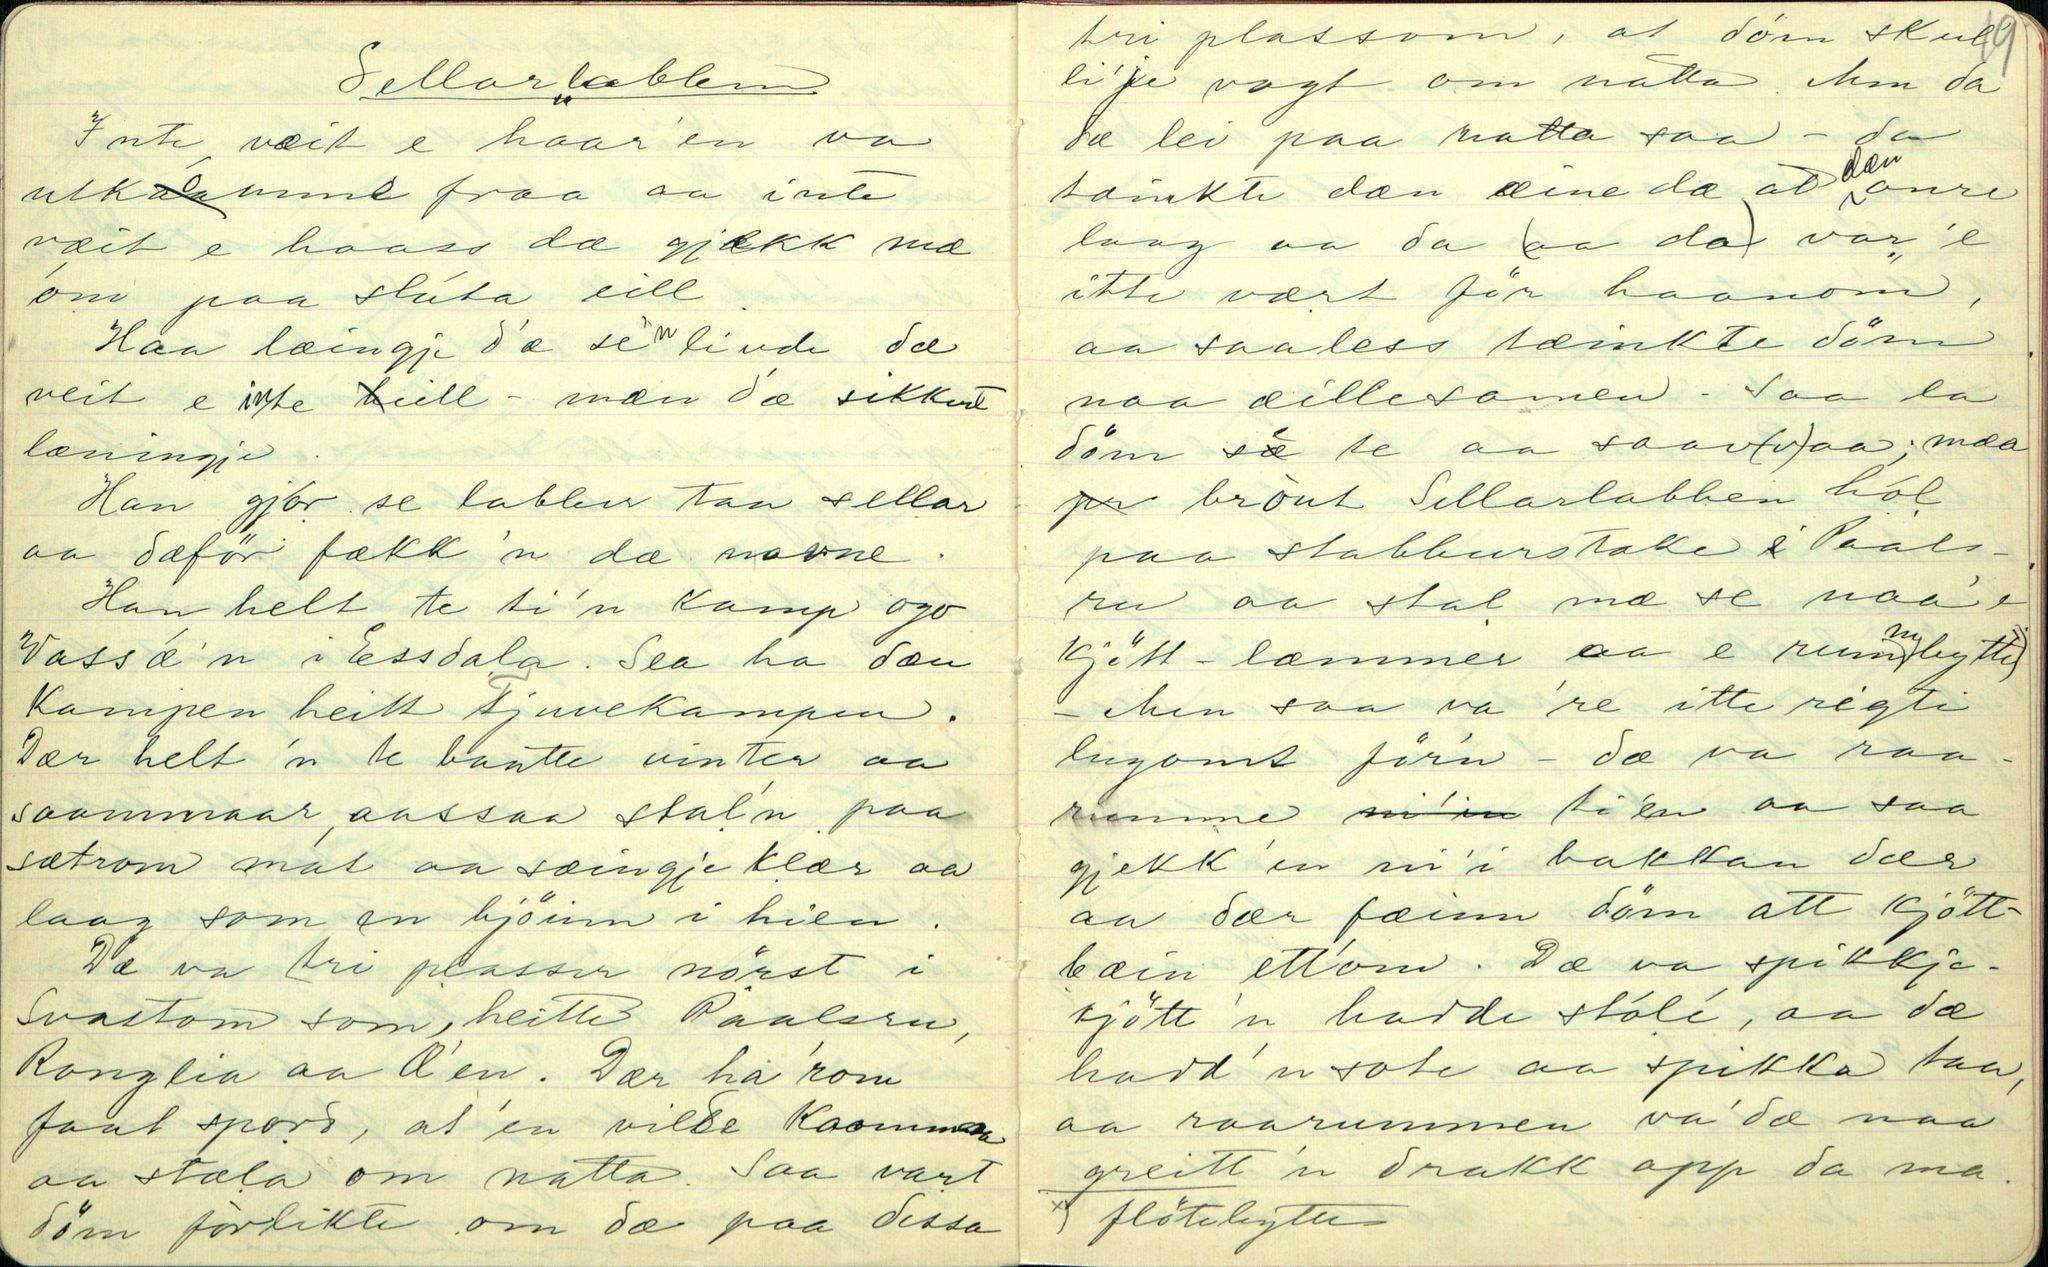 Sellarlabben
Inte væit e haar'en va
utkåmmé fraa aa inte
væit e haass dæ gjekk mæ
óm paa slúta eill.
Haa læingje d'æ sé'n livde dæ
veit e inte heill - mæn d'æ sikkert
læningje.
Han gjór se labber taa sellar
aa dæför fækk'n dæ navne.
Han helt te ti'n Kamp ogo
Vassæ'n i Essdala. Sea ha dæn
Kampen heitt Kjuvekampen.
Dær helt'n te baatte vinter aa
saammaar, aassaa stal'n paa
sætrom mat aa sæingjeklær aa
laag som en bjöinn i hien.
Dæ va tri plasser nörst i
Svastom som heitte Paalsru,
Ronglia aa Ø'en. Dær ha'rom
faat spord, at'en vilde Kaamma
aa stæla om natta. Saa vart
döm förlikte om dæ paa dissa
19
tri plassom, at döm skul
li'je vagt om natta. Mm da
dæ lei paa natta saa - da
tæinkte dæn æine dæ at dæn anre
laag aa da (aa da) var'e
itte vært för haanom,
aa saaless tæinkte döm
naa æillesamen. Saa la
döm sé te aa saav(v)aa; mæa
pr bröut Sellarlabben hól
paa stabburstake i Paals-
ru aa stal mæ se naa'e
Kjött-læmmer aa e rumm(bytte)
- Men saa va're itte régti
lugomt för'n - dæ va raa-
rumme ni'in ti'en aa saa
gjekk'en ni'i bakkan dær
aa dær fæinn döm att Kjött-
bæin ett'om. Dæ va spikkje-
kjött'n hadde stólé, aa dæ
hadd'n sote aa spikka taa,
aa raarummen va'dæ naa
greitt'n drakk opp da ma.
x) flötebytte